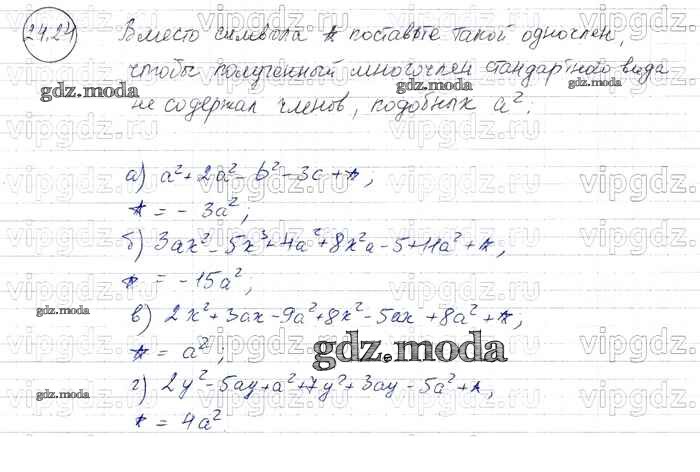 24.24 Вместо символа * поставьте такой одночлен,
чтобы полученный многочлен стандартного вида
не содержал членов, подобных a²:
gdz.moda
gdz.moda
а) a² + 2a² - b² - 3c + *;
* = - 3a²;
б) 3ax² - 5x³ + 4a² + 8x²a - 5 + 11a² + *,
* = -15a²,
gdz.moda
в) 2x² + 3ax - 9a² + 8x² - 5ax + 8a² + *;
* = a²;
gdz.moda
г) 2y² - 5ay + a² + 7y² + 3ay - 5a² + *,
gdz.moda
* = 4a².
vipgdz.ru